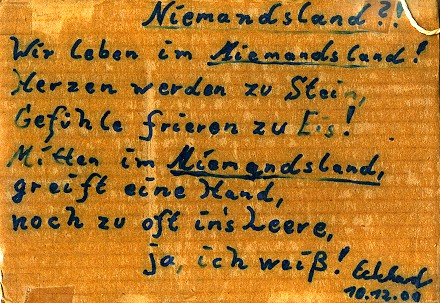 Niemandsland?!
Wir leben im Niemandsland!
Herzen werden zu Stein,
Gefühle frieren zu Eis!
Mitten im Niemandsland,
greift eine Hand,
noch zu oft in's Leere,
ja, ich weiß!
Eckhard
10.12.00